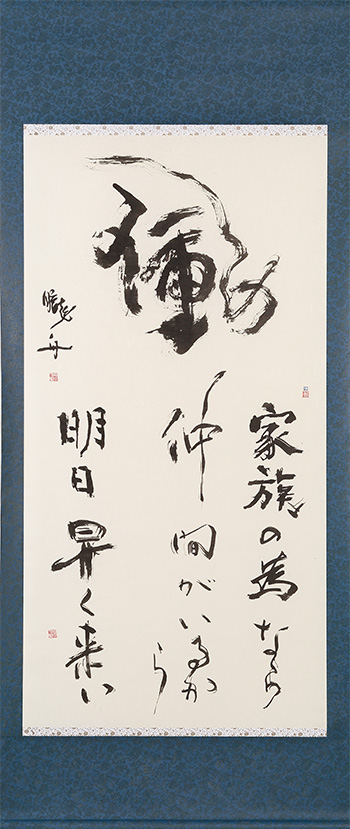 働
家族の為なら
仲間がいるから
明日早く来い